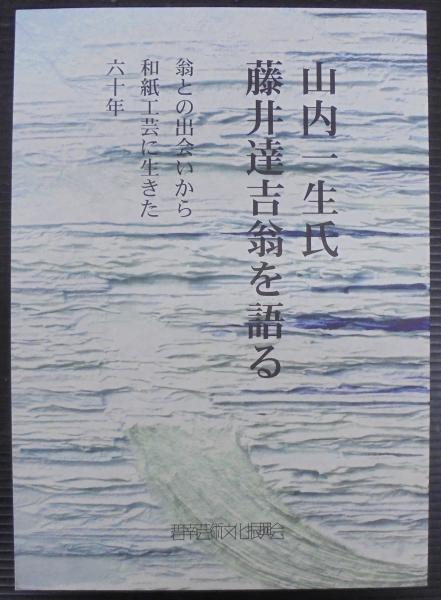 山内一生氏
藤井達吉翁を語る
翁との出会いから
和紙工芸に生きた
六十年
碧南芸術文化振興会